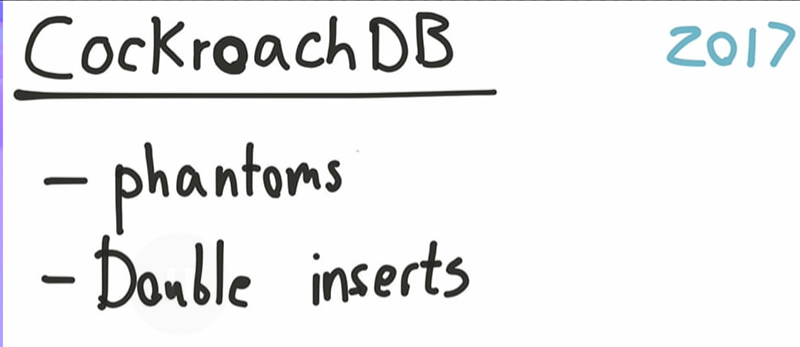 CockroachDB 2017
- phantoms
- Double inserts